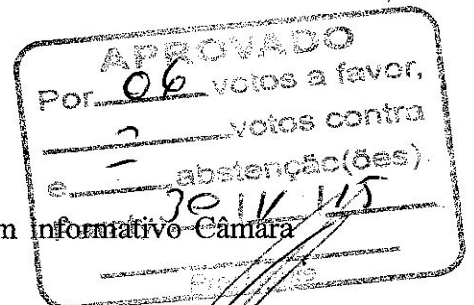 APROVADO
Por 06 votos a favor,
votos contra
e abstenção(ões).
30 / V / 15
m informativo Câmara
Presidente